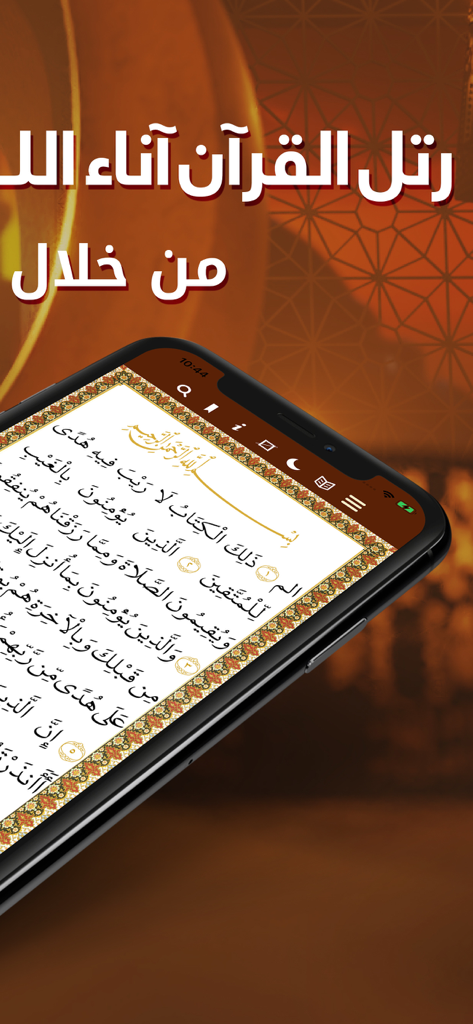 رتل القرآن آناء
من خلال
10:44
بسم الله الرحمن الرحيم
الم ١ ذَلِكَ الْكِتَابُ لَا رَيْبَ فِيهِ هُدًى
لِّلْمُتَّقِينَ ٢ الَّذِينَ يُؤْمِنُونَ بِالْغَيْبِ
وَيُقِيمُونَ الصَّلَاةَ وَمِمَّا رَزَقْنَاهُمْ
٣ وَالَّذِينَ يُؤْمِنُونَ بِمَا أُنزِلَ إِلَيْكَ
مِن قَبْلِكَ وَبِالْآخِرَةِ هُمْ
عَلَى هُدًى مِّن رَّبِّهِمْ
٥ إِنَّ الَّذِينَ